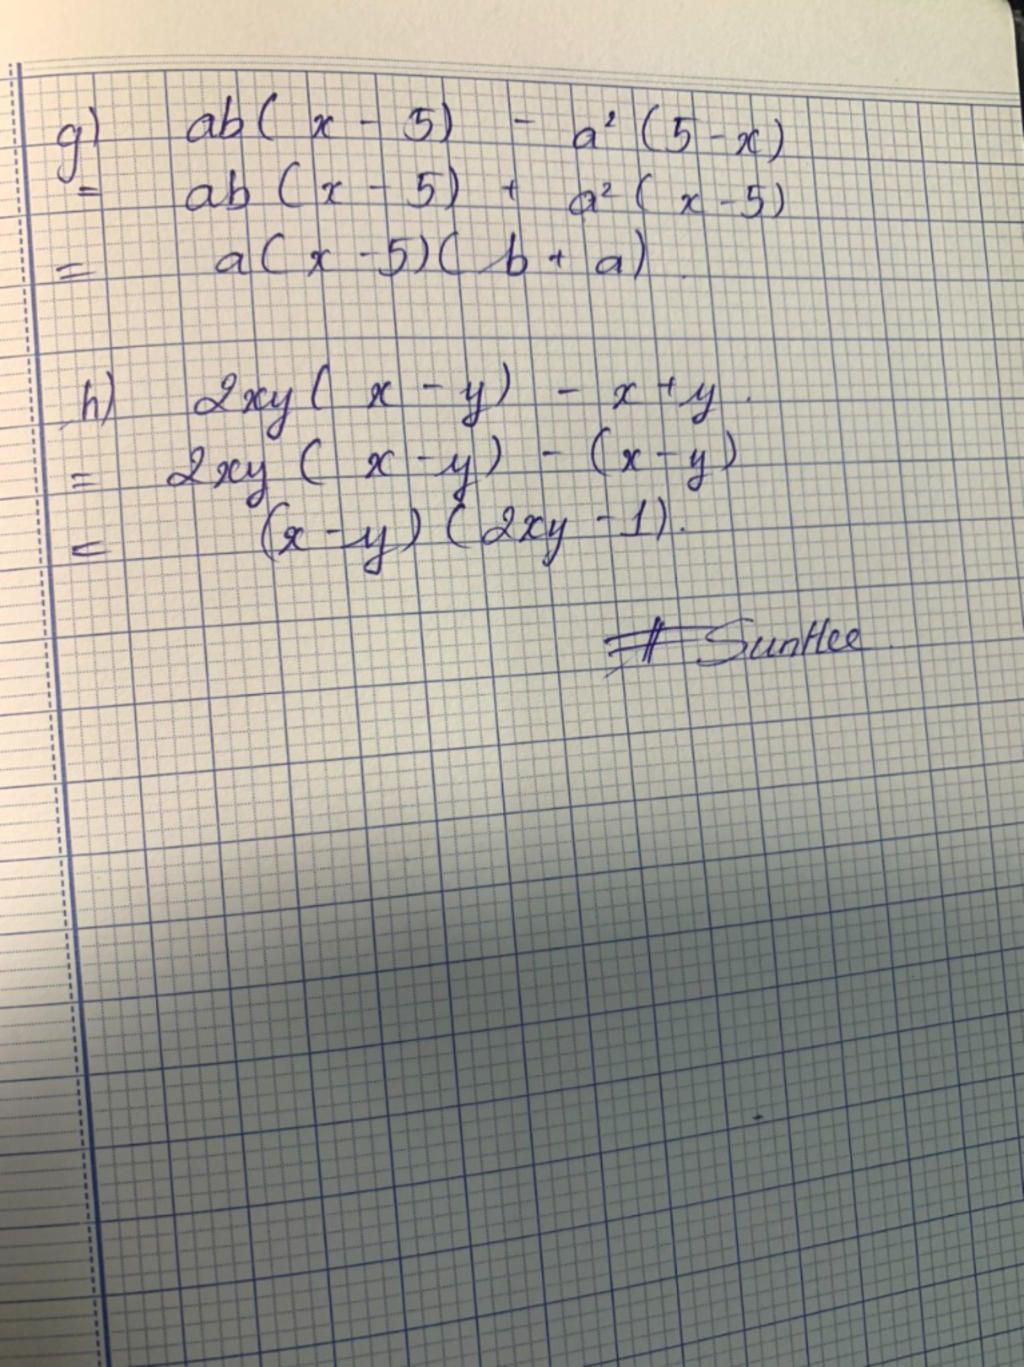 g) ab( x - 5) - a²(5 - x)
= ab (x - 5) + a²( x - 5)
= a( x - 5)( b + a)
h) 2xy( x - y) - x + y.
= 2xy ( x - y) - (x - y)
= (x - y) (2xy - 1).
# SunHee